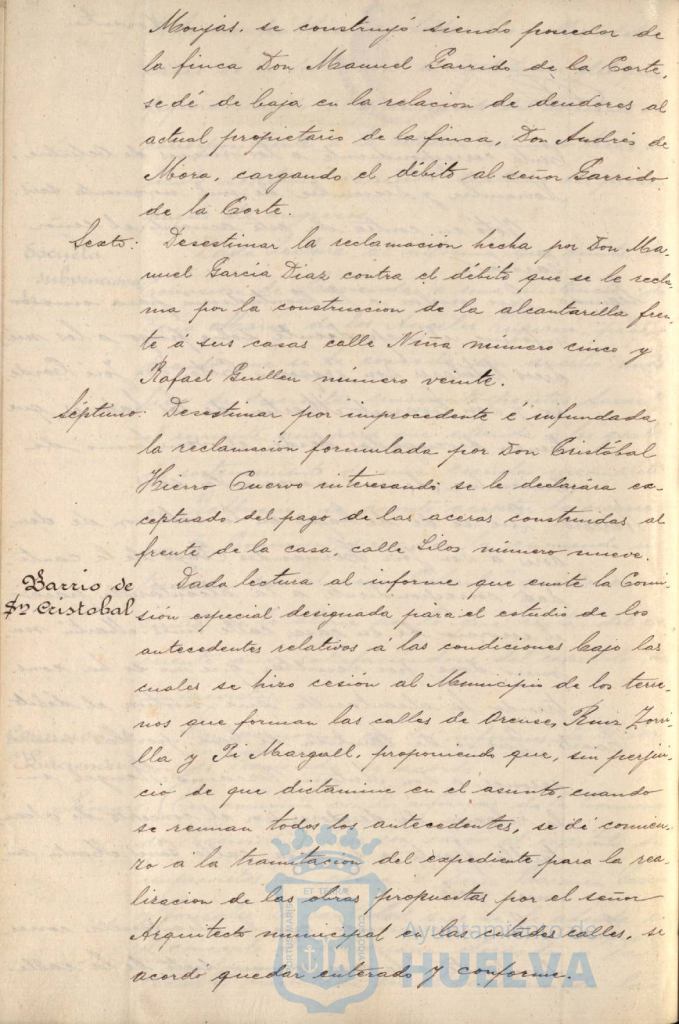 Monjas, se construyó siendo poseedor de
la finca Don Manuel Garrido de la Corte,
se dé de baja en la relacion de deudores al
actual propietario de la finca, Don Andrés de
Mora, cargando el débito al señor Garrido
de la Corte.
Sexto: Desestimar la reclamación hecha por Don Ma-
nuel García Diaz contra el débito que se le recla-
ma por la construccion de la alcantarilla fren-
te á sus casas calle Niña número cinco y
Rafael Guillen número veinte.
Séptimo: Desestimar por improcedente é infundada
la reclamación formulada por Don Cristóbal
Hierro Cuervo interesando se le declarára ex-
ceptuado del pago de las aceras construidas al
frente de la casa, calle Silos número nueve.
Barrio de
Sn Cristobal
Dada lectura al informe que emite la Comi-
sión especial designada para el estudio de los
antecedentes relativos á las condiciones bajo las
cuales se hizo cesión al Municipio de los terre-
nos que forman las calles de Orense, Ruiz Zorri-
lla y Pi Margall, proponiendo que, sin perjui-
cio de que dictamine en el asunto, cuando
se reunan todos los antecedentes, se dé comien-
zo á la tramitación del expediente para la rea-
lizacion de las obras propuestas por el señor
Arquitecto municipal en las citadas calles, se
acordó quedar enterado y conforme.
Ayuntamiento de
HUELVA